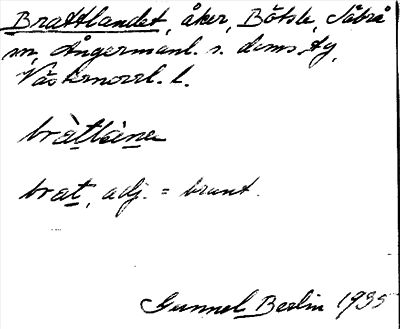 Brattlandet, åker, Bölsta, Säbrå
sn, Ångermanl. s. doms.,
Västernorrl. l.
bràtlàne
brat, adj. = brant.
Gunnel Berlin 1935